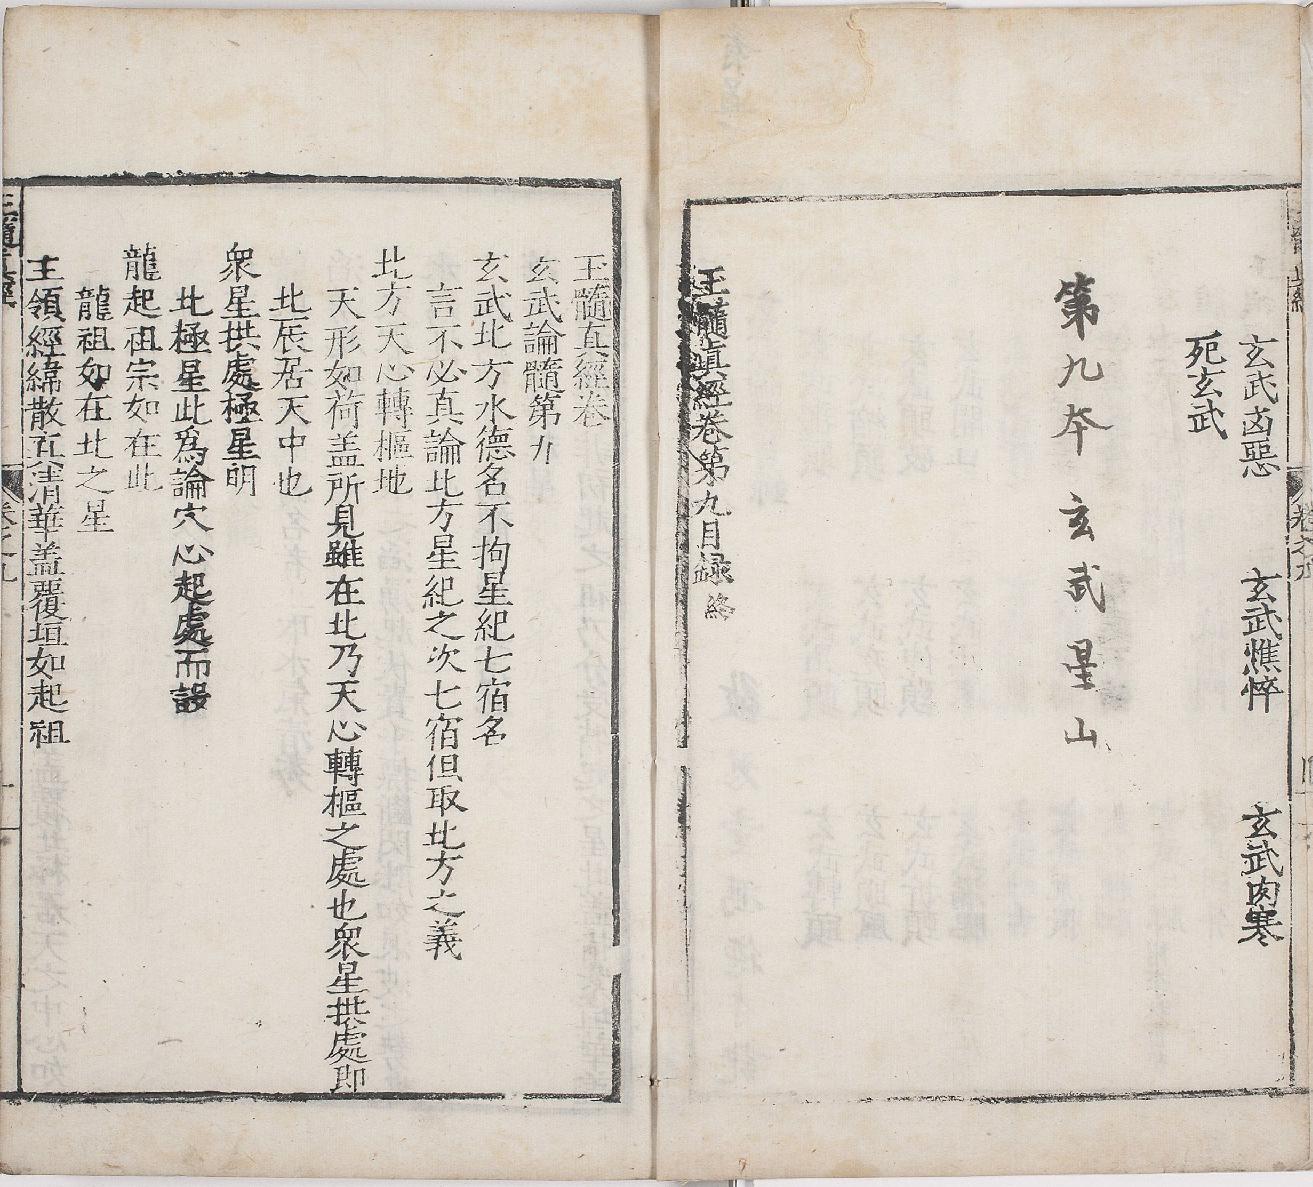 玄武凶惡　玄武憔悴　玄武肉寒
死玄武
第九本玄武星山
玉髓眞經卷第九目録終
玉髓真經卷
玄武論髓第九
玄武北方水德名不拘星紀七宿名
言不必真論北方星紀之次七宿但取北方之義
北方天心轉樞地
天形如荷盖所見雖在北乃天心轉樞之處也衆星拱處即
北辰居天中也
衆星拱處極星明
北極星此爲論穴心起處而設
龍起祖宗如在此
龍祖如在北之星
主領經緯散五清華盖覆垣如起祖